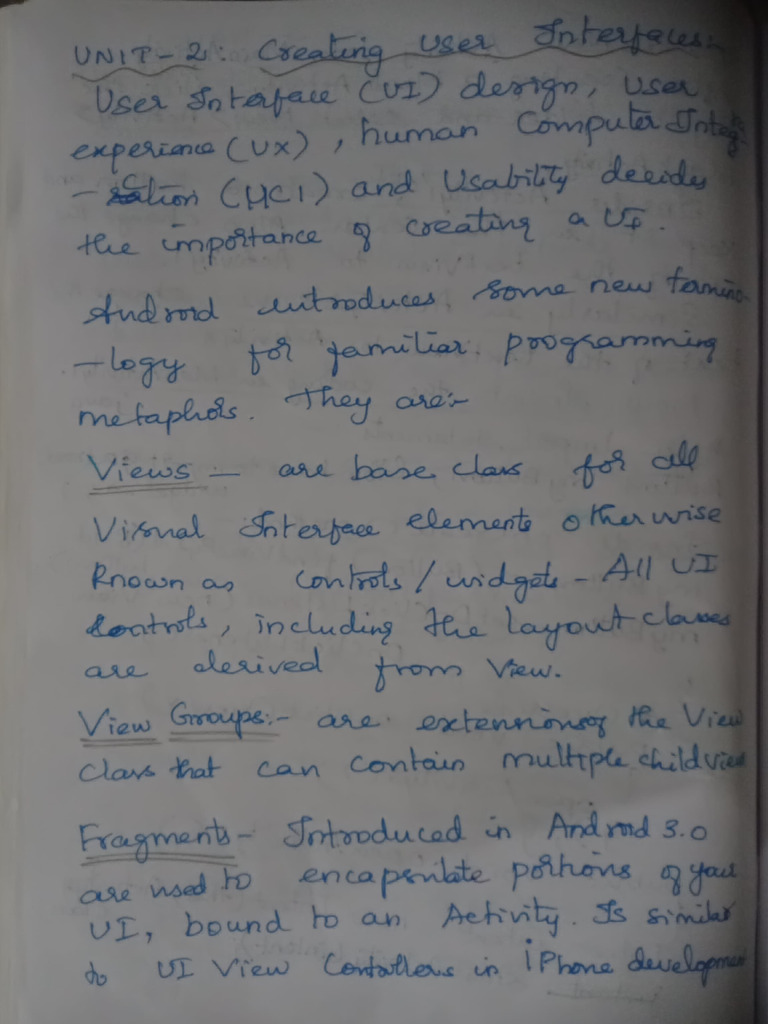 UNIT-2: Creating User Interfaces:
User Interface (UI) design, User
experience (UX), human Computer Integ
-ration (HCI) and Usability decides
the importance of creating a UI.
Android introduces some new termino
-logy for familiar programming
metaphors. They are:-
Views - are base class for all
Visual Interface elements otherwise
known as controls / widgets - All UI
Controls, including the layout classes
are derived from View.
View Groups:- are extensions of the View
Class that can contain multiple child view
Fragments - Introduced in Android 3.0
are used to encapsulate portions of your
UI, bound to an Activity. Is similar
to UI View Contollers in iPhone development